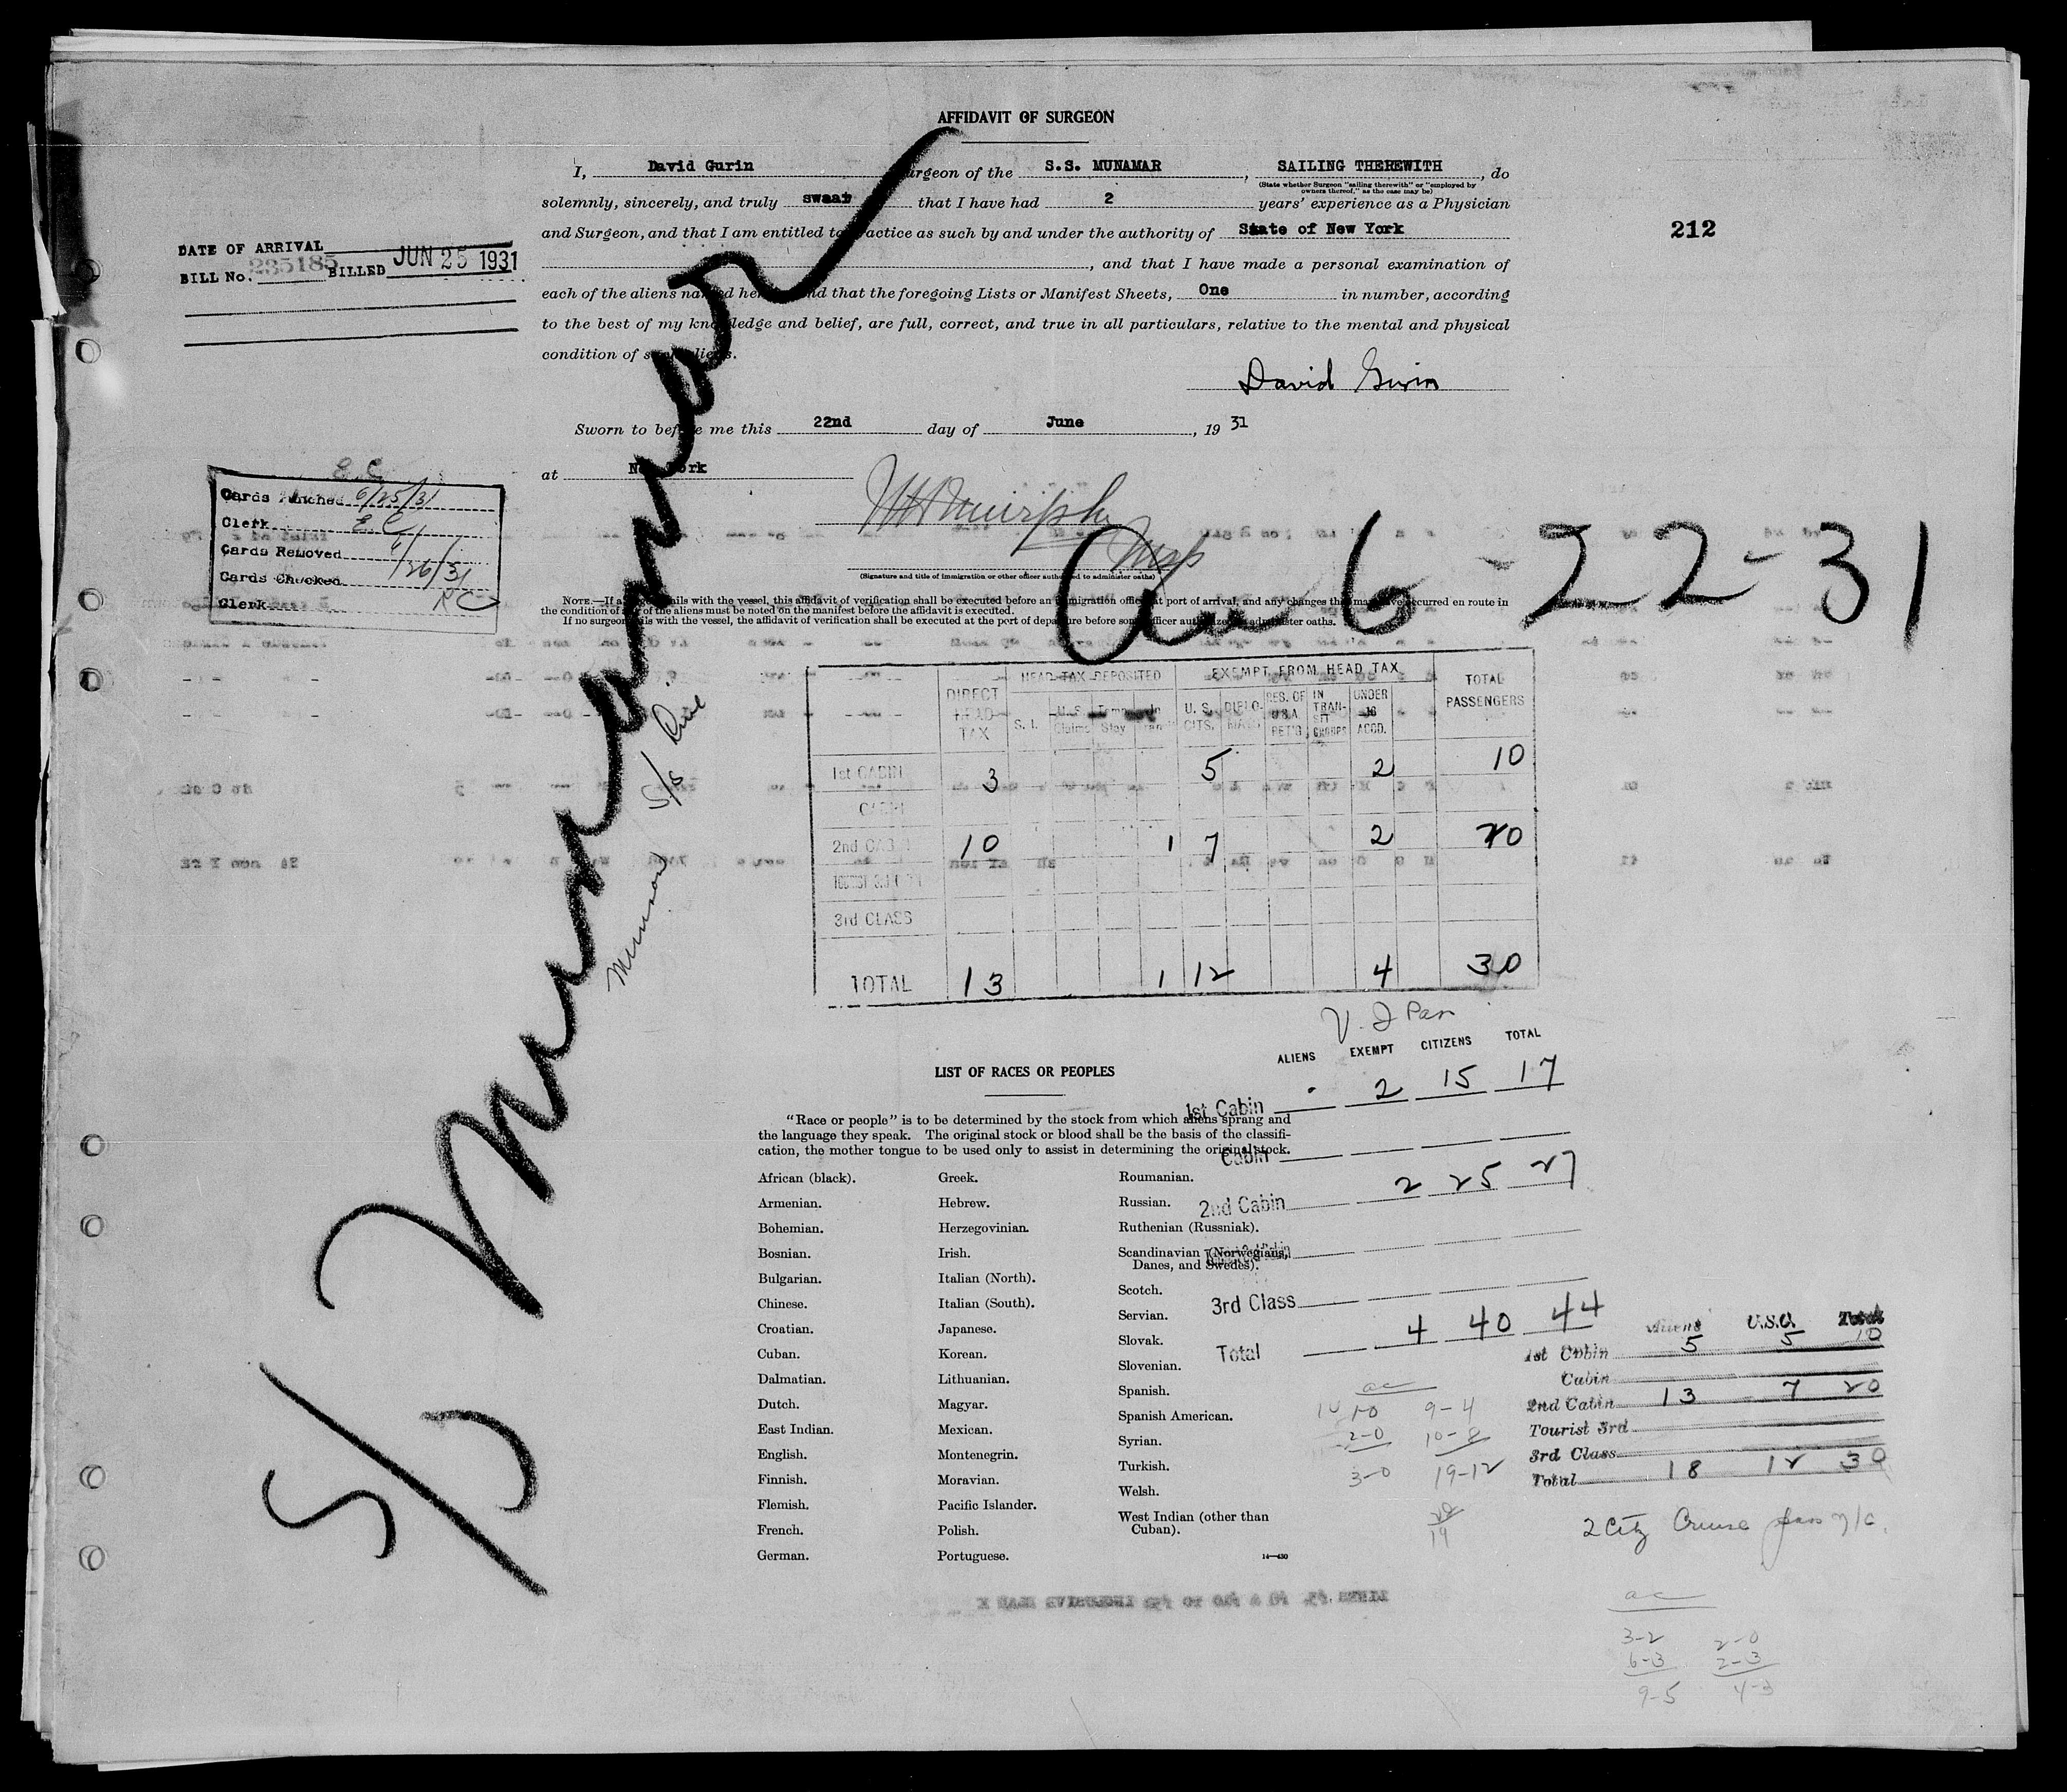 AFFIDAVIT OF SURGEON
I, David Gurin urgeon of the S.S. MUNAMAR, SAILING THEREWITH, do
(State whether Surgeon "sailing therewith" or "employed by
owners thereof," as the case may be)
solemnly, sincerely, and truly swear that I have had 2 years' experience as a Physician
and Surgeon, and that I am entitled to practice as such by and under the authority of State of New York
, and that I have made a personal examination of
each of the aliens named herein and that the foregoing Lists or Manifest Sheets, One in number, according
to the best of my knowledge and belief, are full, correct, and true in all particulars, relative to the mental and physical
condition of said aliens.
212
DATE OF ARRIVAL
BILL No. 235185 BILLED JUN 25 1931
David Gurin
Sworn to before me this 22nd day of June, 19 31
at New York
E.C.
Cards Punched 6/25/31
Clerk E.C.
Cards Removed 6/26/31
Cards Checked
Clerk
(Signature and title of immigration or other officer authorized to administer oaths)
S/S Munamar
Arr 6-22-31
Munson S/S Line
NOTE.—If a surgeon sails with the vessel, this affidavit of verification shall be executed before an immigration officer at port of arrival, and any changes that may have occurred en route in
the condition of any of the aliens must be noted on the manifest before the affidavit is executed.
If no surgeon sails with the vessel, the affidavit of verification shall be executed at the port of departure before some officer authorized to administer oaths.
DIRECT HEAD TAX HEAD TAX DEPOSITED EXEMPT FROM HEAD TAX TOTAL PASSENGERS
S. I. U. S. Claims Temp Stay In Tran U. S. CITS. DIPLOMATS RES. OF U.S.A. RET'G IN TRANSIT GROUPS UNDER 16 ACCD.
1st CABIN 3 5 2 10
CABIN
2nd CABIN 10 1 7 2 20
TOURIST 3rd CABIN
3rd CLASS
TOTAL 13 1 12 4 30
ALIENS EXEMPT CITIZENS TOTAL
1st Cabin 2 15 17
Cabin
2nd Cabin 2 25 27
3rd Class
Total 4 40 44
LIST OF RACES OR PEOPLES
"Race or people" is to be determined by the stock from which aliens sprang and
the language they speak. The original stock or blood shall be the basis of the classifi-
cation, the mother tongue to be used only to assist in determining the original stock.
African (black).
Armenian.
Bohemian.
Bosnian.
Bulgarian.
Chinese.
Croatian.
Cuban.
Dalmatian.
Dutch.
East Indian.
English.
Finnish.
Flemish.
French.
German.
Greek.
Hebrew.
Herzegovinian.
Irish.
Italian (North).
Italian (South).
Japanese.
Korean.
Lithuanian.
Magyar.
Mexican.
Montenegrin.
Moravian.
Pacific Islander.
Polish.
Portuguese.
Roumanian.
Russian.
Ruthenian (Russniak).
Scandinavian (Norwegians,
Danes, and Swedes).
Scotch.
Servian.
Slovak.
Slovenian.
Spanish.
Spanish American.
Syrian.
Turkish.
Welsh.
West Indian (other than
Cuban).
14—430
Aliens U.S.C. Total
1st Cabin 5 5 10
Cabin
2nd Cabin 13 7 20
Tourist 3rd
3rd Class
Total 18 12 30
ac
1-0 9-4
2-0 10-8
3-0 19-12
19
2 City Cruise
ac
3-2 2-0
6-3 2-3
9-5 4-3